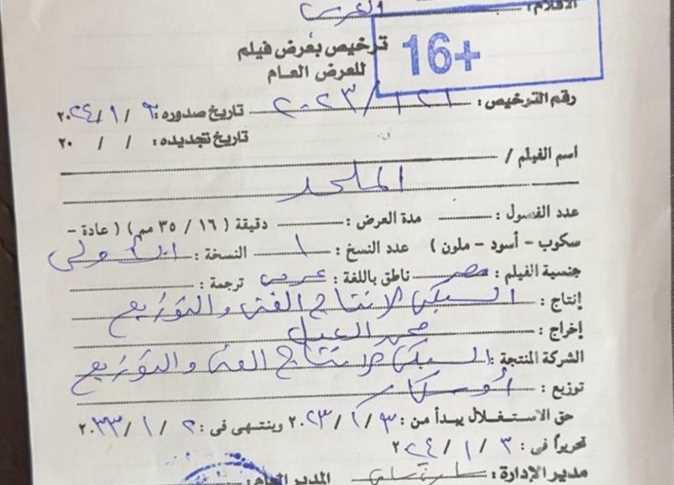 الأفلام : العربي
ترخيص بعرض فيلم
للعرض العام
16+
رقم الترخيص : ١٢١ / ٢٠٢٣ تاريخ صدوره : ٣ / ١ / ٢٠٢٤
تاريخ تجديده : / / ٢٠
اسم الفيلم /
الملحد
عدد الفصول : مدة العرض : دقيقة ( ١٦ / ٣٥ مم ) ( عادة -
سكوب - أسود - ملون ) عدد النسخ : ١ النسخة : الأولى
جنسية الفيلم : مصر ناطق باللغة : عربى ترجمة :
إنتاج : السبكى لإنتاج الفنى والتوزيع
إخراج : محمد العدل
الشركة المنتجة : السبكى لإنتاج الفنى والتوزيع
توزيع : أوسكار
حق الاستغلال يبدأ من : ٣ / ١ / ٢٠٢٣ وينتهى فى : ٢ / ١ / ٢٠٣٣
تحريراً فى : ٣ / ١ / ٢٠٢٤
مدير الإدارة : المدير العام :